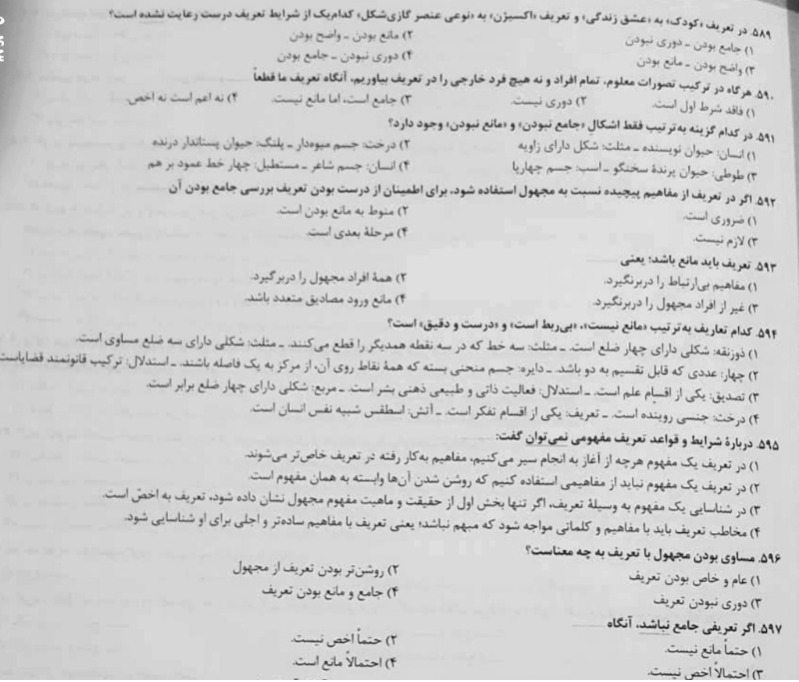 ۵۸۹. در تعریف «کودک» به «عشق زندگی» و تعریف «اکسیژن» به «نوعی عنصر گازی‌شکل» کدام‌یک از شرایط تعریف درست رعایت نشده است؟
۱) جامع بودن ـ دوری نبودن
۲) مانع بودن ـ واضح بودن
۳) واضح بودن ـ مانع بودن
۴) دوری نبودن ـ جامع بودن
۵۹۰. هرگاه در ترکیب تصورات معلوم، تمام افراد و نه هیچ فرد خارجی را در تعریف بیاوریم، آنگاه تعریف ما قطعاً
۱) فاقد شرط اول است.
۲) دوری نیست.
۳) جامع است، اما مانع نیست.
۴) نه اعم است نه اخص.
۵۹۱. در کدام گزینه به‌ترتیب فقط اشکالِ «جامع نبودن» و «مانع نبودن» وجود دارد؟
۱) انسان: حیوان نویسنده ـ مثلث: شکل دارای زاویه
۲) درخت: جسم میوه‌دار ـ پلنگ: حیوان پستاندار درنده
۳) طوطی: حیوان پرندهٔ سخنگو ـ اسب: جسم چهارپا
۴) انسان: جسم شاعر ـ مستطیل: چهار خط عمود بر هم
۵۹۲. اگر در تعریف از مفاهیم پیچیده نسبت به مجهول استفاده شود، برای اطمینان از درست بودن تعریف بررسی جامع بودن آن
۱) ضروری است.
۲) منوط به مانع بودن است.
۳) لازم نیست.
۴) مرحلهٔ بعدی است.
۵۹۳. تعریف باید مانع باشد؛ یعنی
۱) مفاهیم بی‌ارتباط را دربرنگیرد.
۲) همهٔ افراد مجهول را دربرگیرد.
۳) غیر از افراد مجهول را دربرنگیرد.
۴) مانع ورود مصادیق متعدد باشد.
۵۹۴. کدام تعاریف به‌ترتیب «مانع نیست»، «بی‌ربط است» و «درست و دقیق» است؟
۱) ذوزنقه: شکلی دارای چهار ضلع است. ـ مثلث: سه خط که در سه نقطه همدیگر را قطع می‌کنند. ـ مثلث: شکلی دارای سه ضلع مساوی است.
۲) چهار: عددی که قابل تقسیم به دو باشد. ـ دایره: جسم منحنی بسته که همهٔ نقاط روی آن، از مرکز به یک فاصله باشند. ـ استدلال: ترکیب قانونمند قضایاست
۳) تصدیق: یکی از اقسام علم است. ـ استدلال: فعالیت ذاتی و طبیعی ذهنی بشر است. ـ مربع: شکلی دارای چهار ضلع برابر است.
۴) درخت: جنسی روینده است. ـ تعریف: یکی از اقسام تفکر است. ـ آتش: اسطقس شبیه نفس انسان است.
۵۹۵. دربارهٔ شرایط و قواعد تعریف مفهومی نمی‌توان گفت:
۱) در تعریف یک مفهوم هرچه از آغاز به انجام سیر می‌کنیم، مفاهیم به‌کار رفته در تعریف خاص‌تر می‌شوند.
۲) در تعریف یک مفهوم نباید از مفاهیمی استفاده کنیم که روشن شدن آن‌ها وابسته به همان مفهوم است.
۳) در شناسایی یک مفهوم به وسیلهٔ تعریف، اگر تنها بخش اول از حقیقت و ماهیت مفهوم مجهول نشان داده شود، تعریف به اخصّ است.
۴) مخاطب تعریف باید با مفاهیم و کلماتی مواجه شود که مبهم نباشد؛ یعنی تعریف با مفاهیم ساده‌تر و اجلی برای او شناسایی شود.
۵۹۶. مساوی بودن مجهول با تعریف به چه معناست؟
۱) عام و خاص بودن تعریف
۲) روشن‌تر بودن تعریف از مجهول
۳) دوری نبودن تعریف
۴) جامع و مانع بودن تعریف
۵۹۷. اگر تعریفی جامع نباشد، آنگاه
۱) حتماً مانع نیست.
۲) حتماً اخص نیست.
۳) احتمالاً اخص نیست.
۴) احتمالاً مانع است.